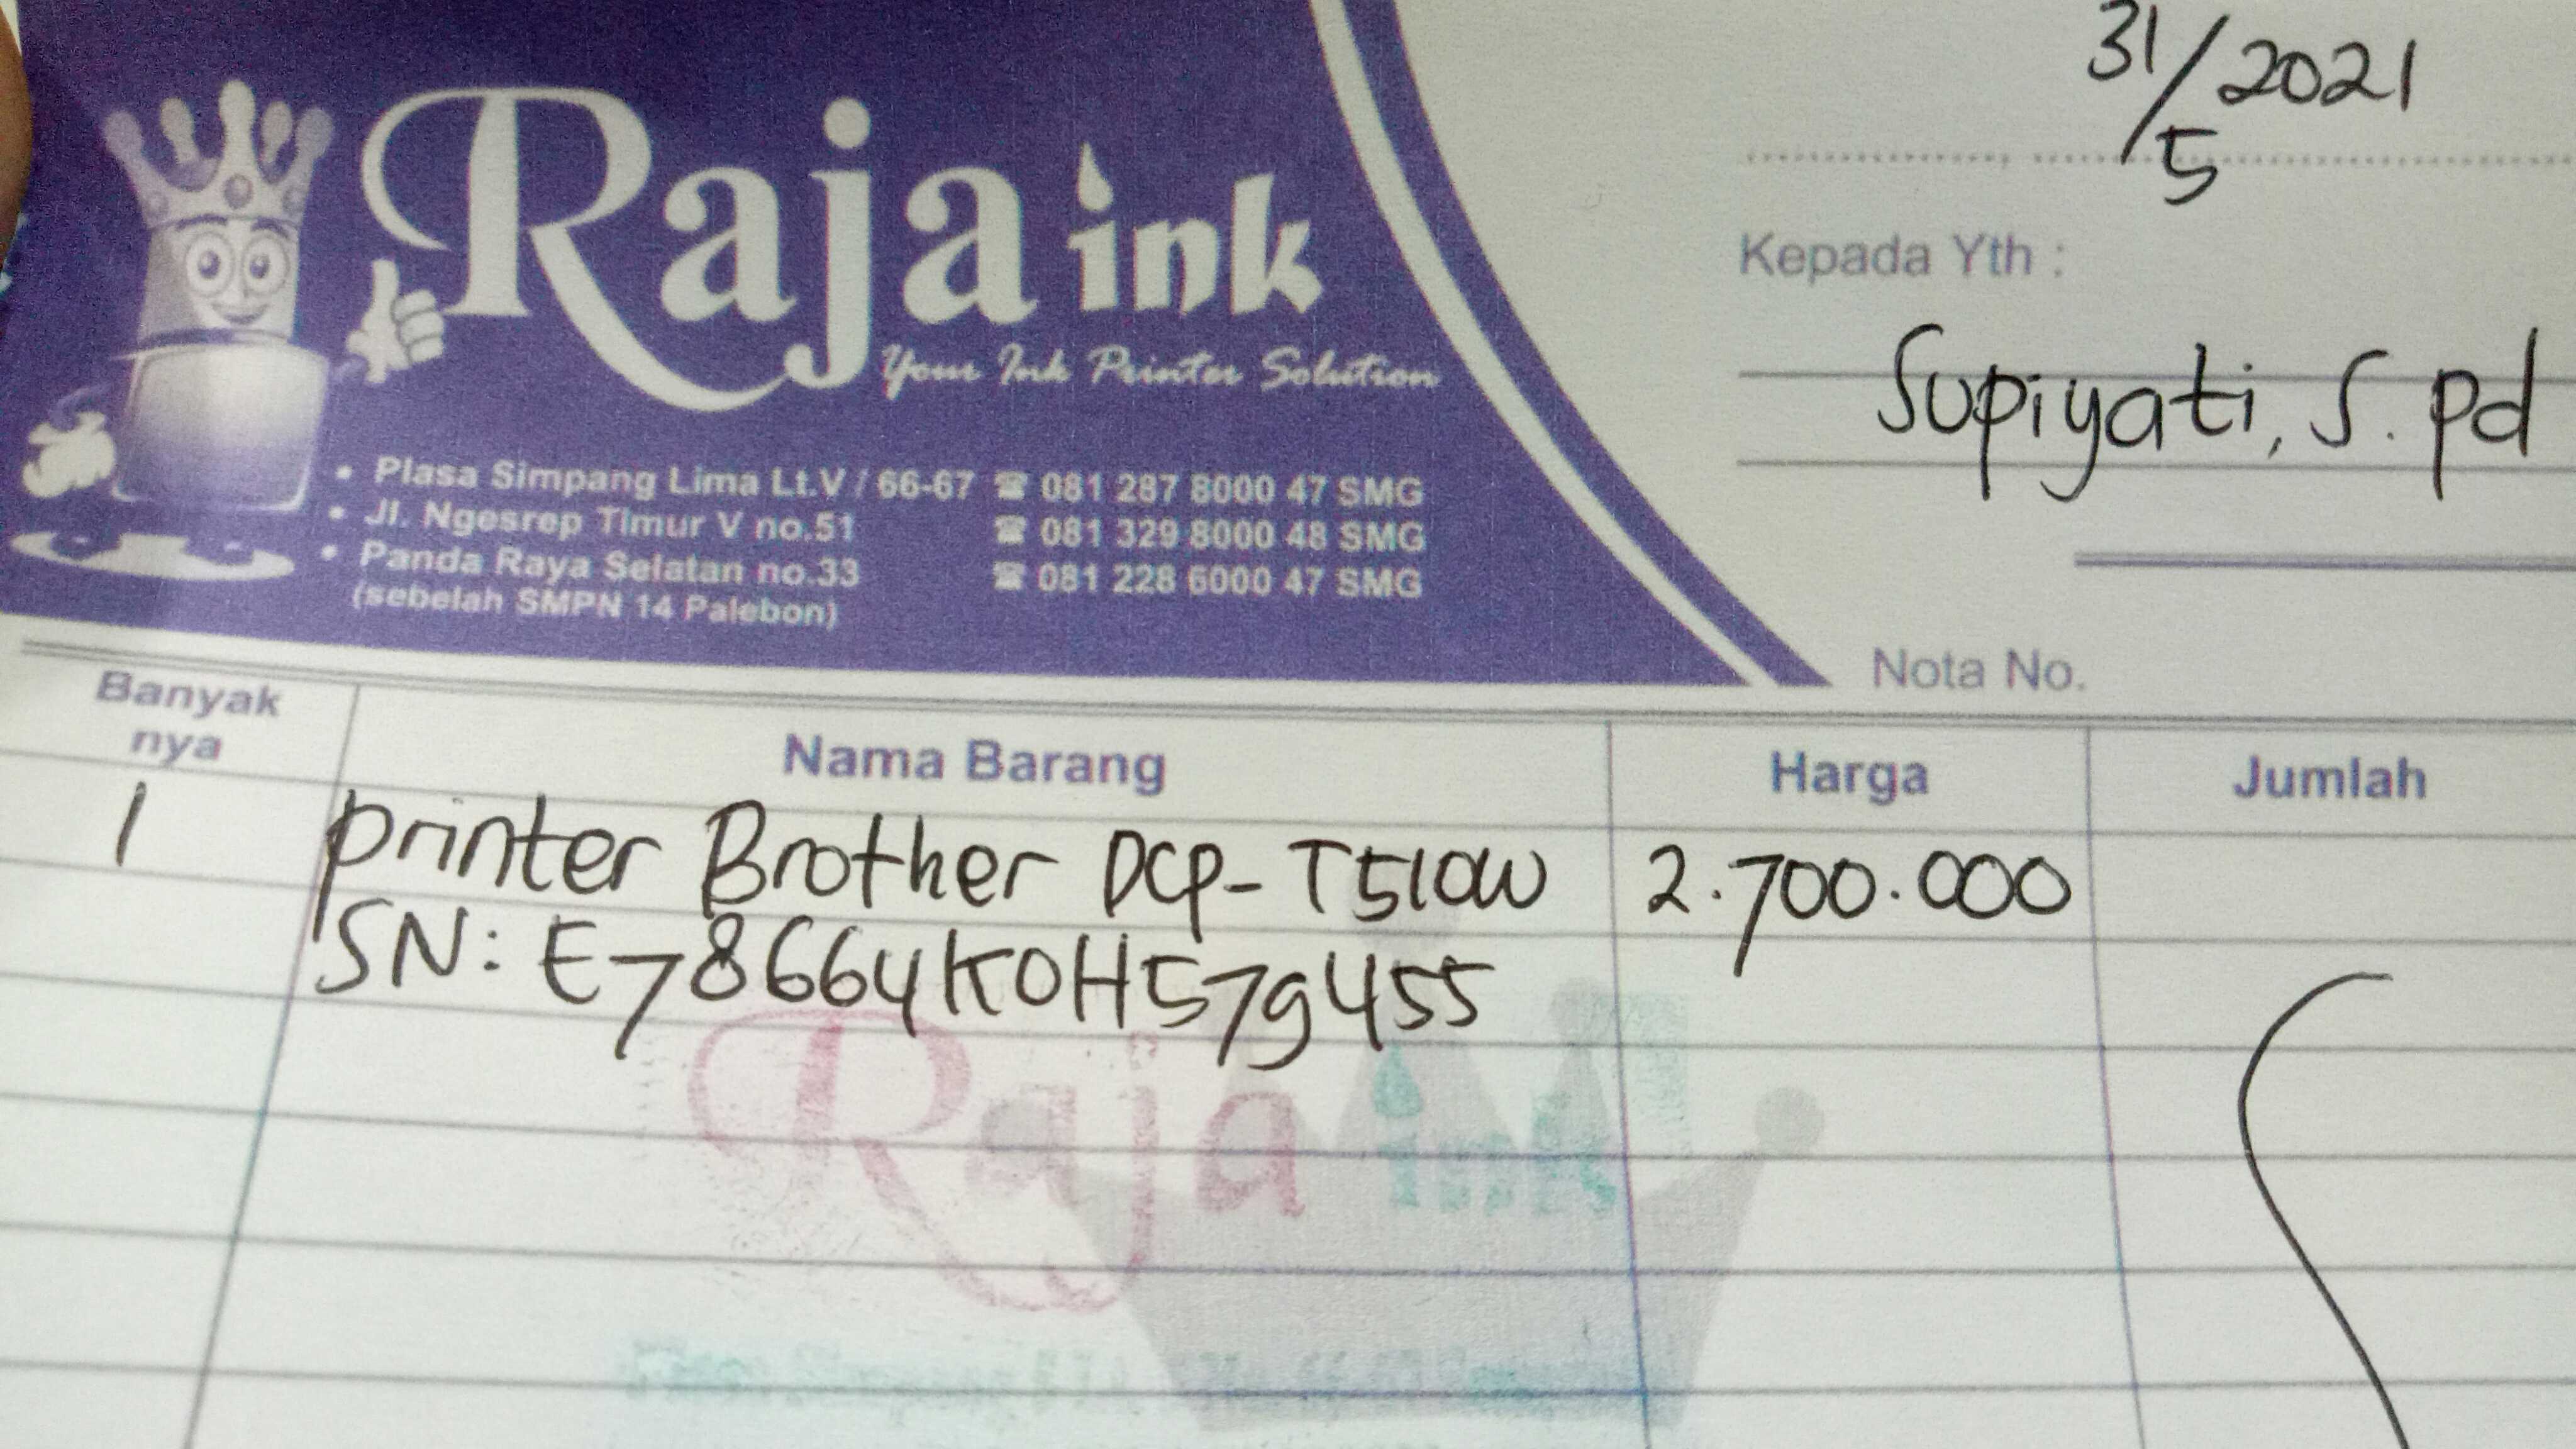 31/5 2021
Raja ink
Your Ink Printer Solution
Kepada Yth :
Supiyati, S.pd
• Plasa Simpang Lima Lt.V / 66-67 ☎ 081 287 8000 47 SMG
• Jl. Ngesrep Timur V no.51 ☎ 081 329 8000 48 SMG
• Panda Raya Selatan no.33 ☎ 081 228 6000 47 SMG
(sebelah SMPN 14 Palebon)
Nota No.
Banyak
nya
Nama Barang
Harga
Jumlah
1 printer Brother DCP-T510W 2.700.000
SN: E78664K0H579455
Raja ink